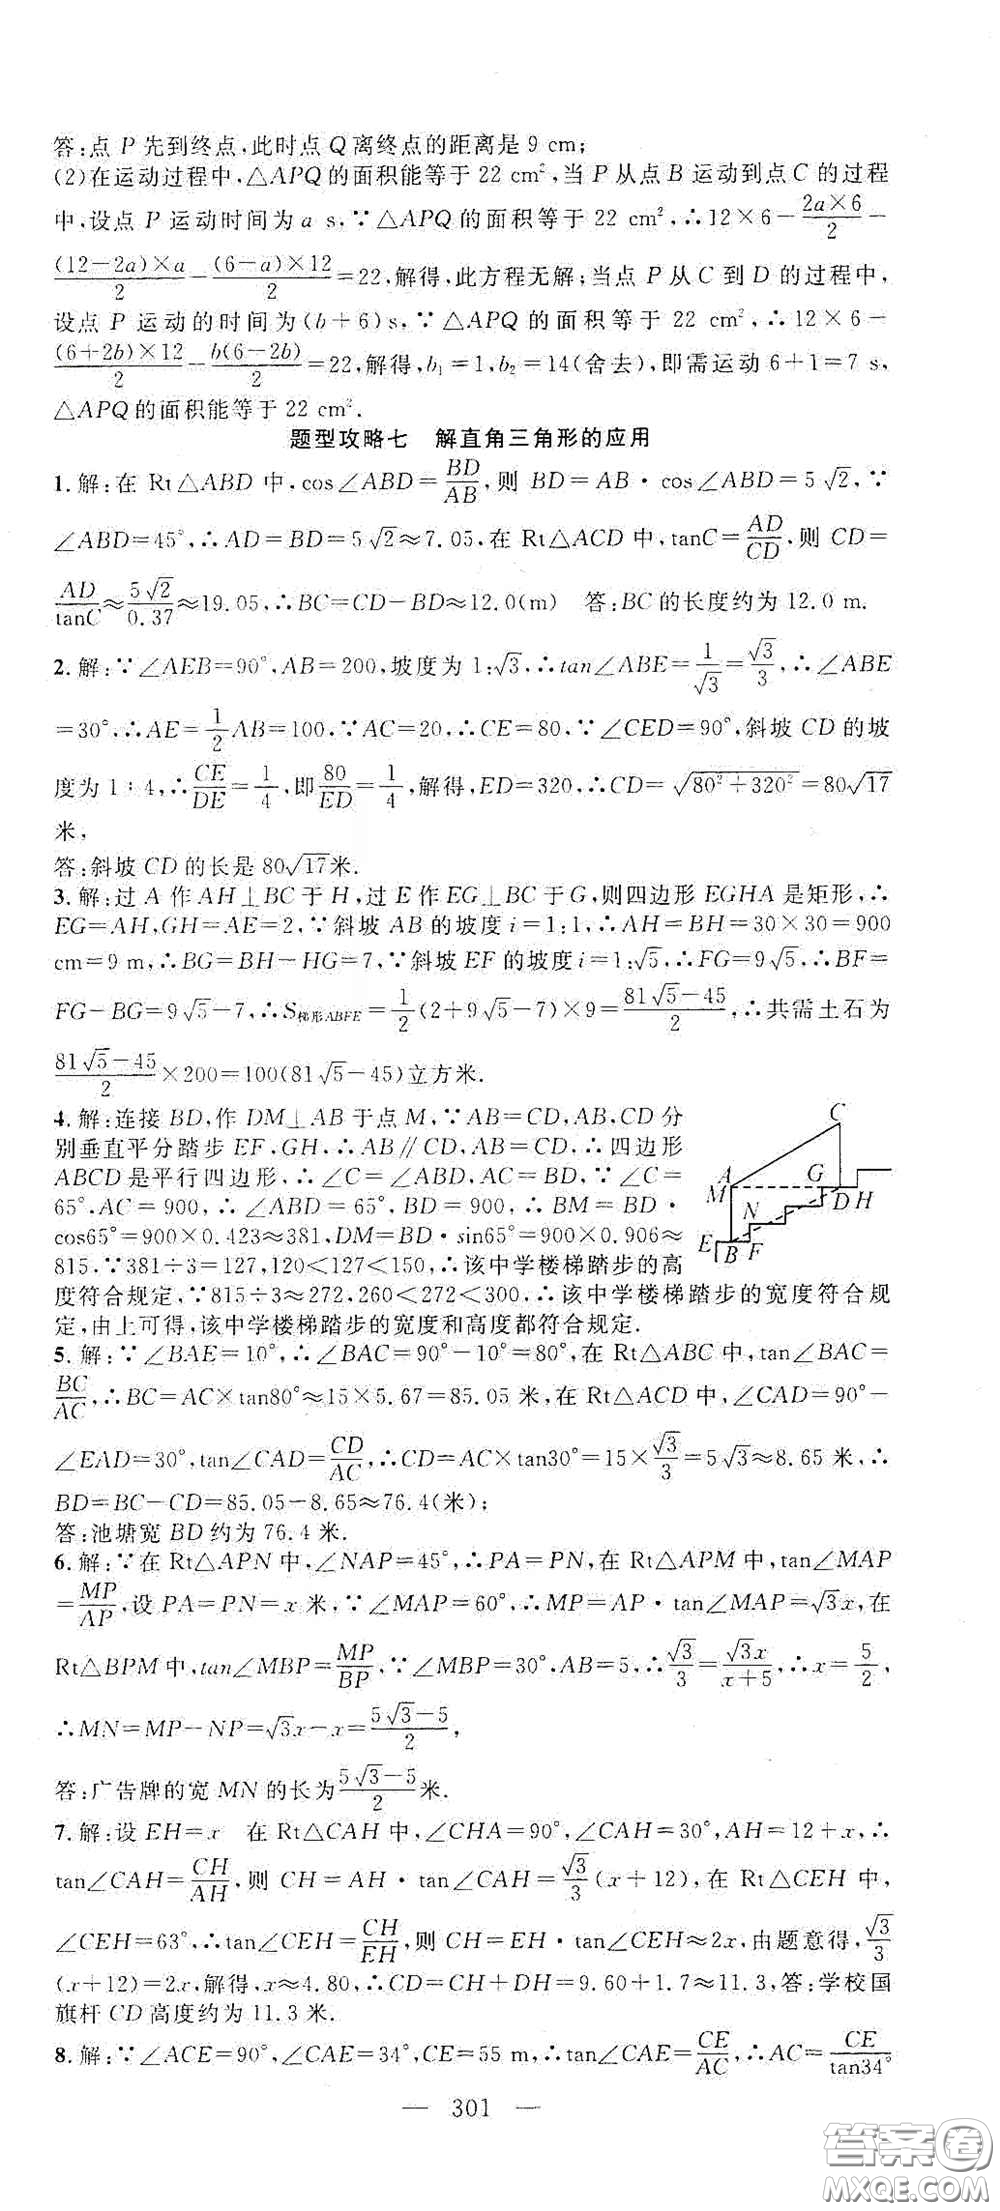 答:点 P 先到终点,此时点 Q 离终点的距离是 9 cm;
(2)在运动过程中,△APQ 的面积能等于 22 cm²,当 P 从点 B 运动到点 C 的过程
中,设点 P 运动时间为 a s,∵△APQ 的面积等于 22 cm²,∴12×6−\frac{2a×6}{2}−
\frac{(12−2a)×a}{2}−\frac{(6−a)×12}{2}=22,解得,此方程无解;当点 P 从 C 到 D 的过程中,
设点 P 运动的时间为(b+6)s,∵△APQ 的面积等于 22 cm²,∴12×6−
\frac{(6+2b)×12}{2}−\frac{b(6−2b)}{2}=22,解得,b₁=1,b₂=14(舍去),即需运动 6+1=7 s,
△APQ 的面积能等于 22 cm².
题型攻略七 解直角三角形的应用
1.解:在 Rt△ABD 中,cos∠ABD=\frac{BD}{AB},则 BD=AB·cos∠ABD=5√2,∵
∠ABD=45°,∴AD=BD=5√2≈7.05,在 Rt△ACD 中,tanC=\frac{AD}{CD},则 CD=
\frac{AD}{tanC}≈\frac{5√2}{0.37}≈19.05,∴BC=CD−BD≈12.0(m) 答:BC 的长度约为 12.0 m.
2.解:∵∠AEB=90°,AB=200,坡度为 1:√3,∴tan∠ABE=\frac{1}{√3}=\frac{√3}{3},∴∠ABE
=30°,∴AE=\frac{1}{2}AB=100,∵AC=20,∴CE=80,∵∠CED=90°,斜坡 CD 的坡
度为 1:4,∴\frac{CE}{DE}=\frac{1}{4},即\frac{80}{ED}=\frac{1}{4},解得,ED=320,∴CD=√(80²+320²)=80√17
米,
答:斜坡 CD 的长是 80√17米.
3.解:过 A 作 AH⊥BC 于 H,过 E 作 EG⊥BC 于 G,则四边形 EGHA 是矩形,∴
EG=AH,GH=AE=2,∵斜坡 AB 的坡度 i=1:1,∴AH=BH=30×30=900
cm=9 m,∴BG=BH−HG=7,∵斜坡 EF 的坡度 i=1:√5,∴FG=9√5,∴BF=
FG−BG=9√5−7,∴S梯形ABFE=\frac{1}{2}(2+9√5−7)×9=\frac{81√5−45}{2},∴共需土石为
\frac{81√5−45}{2}×200=100(81√5−45)立方米.
4.解:连接 BD,作 DM⊥AB 于点 M,∵AB=CD,AB,CD 分
别垂直平分踏步 EF,GH,∴AB∥CD,AB=CD,∴四边形
ABCD 是平行四边形,∴∠C=∠ABD,AC=BD,∵∠C=
65°,AC=900,∴∠ABD=65°,BD=900,∴BM=BD·
cos65°=900×0.423≈381,DM=BD·sin65°=900×0.906≈
815.∵381÷3=127,120<127<150,∴该中学楼梯踏步的高
度符合规定,∵815÷3≈272,260<272<300,∴该中学楼梯踏步的宽度符合规
定,由上可得,该中学楼梯踏步的宽度和高度都符合规定.
C
A
G
M
D H
N
E
B
F
5.解:∵∠BAE=10°,∴∠BAC=90°−10°=80°,在 Rt△ABC 中,tan∠BAC=
\frac{BC}{AC},∴BC=AC×tan80°≈15×5.67=85.05 米,在 Rt△ACD 中,∠CAD=90°−
∠EAD=30°,tan∠CAD=\frac{CD}{AC},∴CD=AC×tan30°=15×\frac{√3}{3}=5√3≈8.65 米,∴
BD=BC−CD=85.05−8.65≈76.4(米);
答:池塘宽 BD 约为 76.4 米.
6.解:∵在 Rt△APN 中,∠NAP=45°,∴PA=PN,在 Rt△APM 中,tan∠MAP
=\frac{MP}{AP},设 PA=PN=x 米,∵∠MAP=60°,∴MP=AP·tan∠MAP=√3x,在
Rt△BPM 中,tan∠MBP=\frac{MP}{BP},∵∠MBP=30°,AB=5,∴\frac{√3}{3}=\frac{√3x}{x+5},∴x=\frac{5}{2},
∴MN=MP−NP=√3x−x=\frac{5√3−5}{2},
答:广告牌的宽 MN 的长为\frac{5√3−5}{2}米.
7.解:设 EH=x 在 Rt△CAH 中,∠CHA=90°,∠CAH=30°,AH=12+x,∴
tan∠CAH=\frac{CH}{AH},则 CH=AH·tan∠CAH=\frac{√3}{3}(x+12),在 Rt△CEH 中,
∠CEH=63°,∴tan∠CEH=\frac{CH}{EH},则 CH=EH·tan∠CEH≈2x,由题意得,\frac{√3}{3}
(x+12)=2x,解得,x≈4.80,∴CD=CH+DH=9.60+1.7≈11.3,答:学校国
旗杆 CD 高度约为 11.3 米.
8.解:∵∠ACE=90°,∠CAE=34°,CE=55 m,∴tan∠CAE=\frac{CE}{AC},∴AC=\frac{CE}{tan34°}
— 301 —
答案卷
MXQE.COM